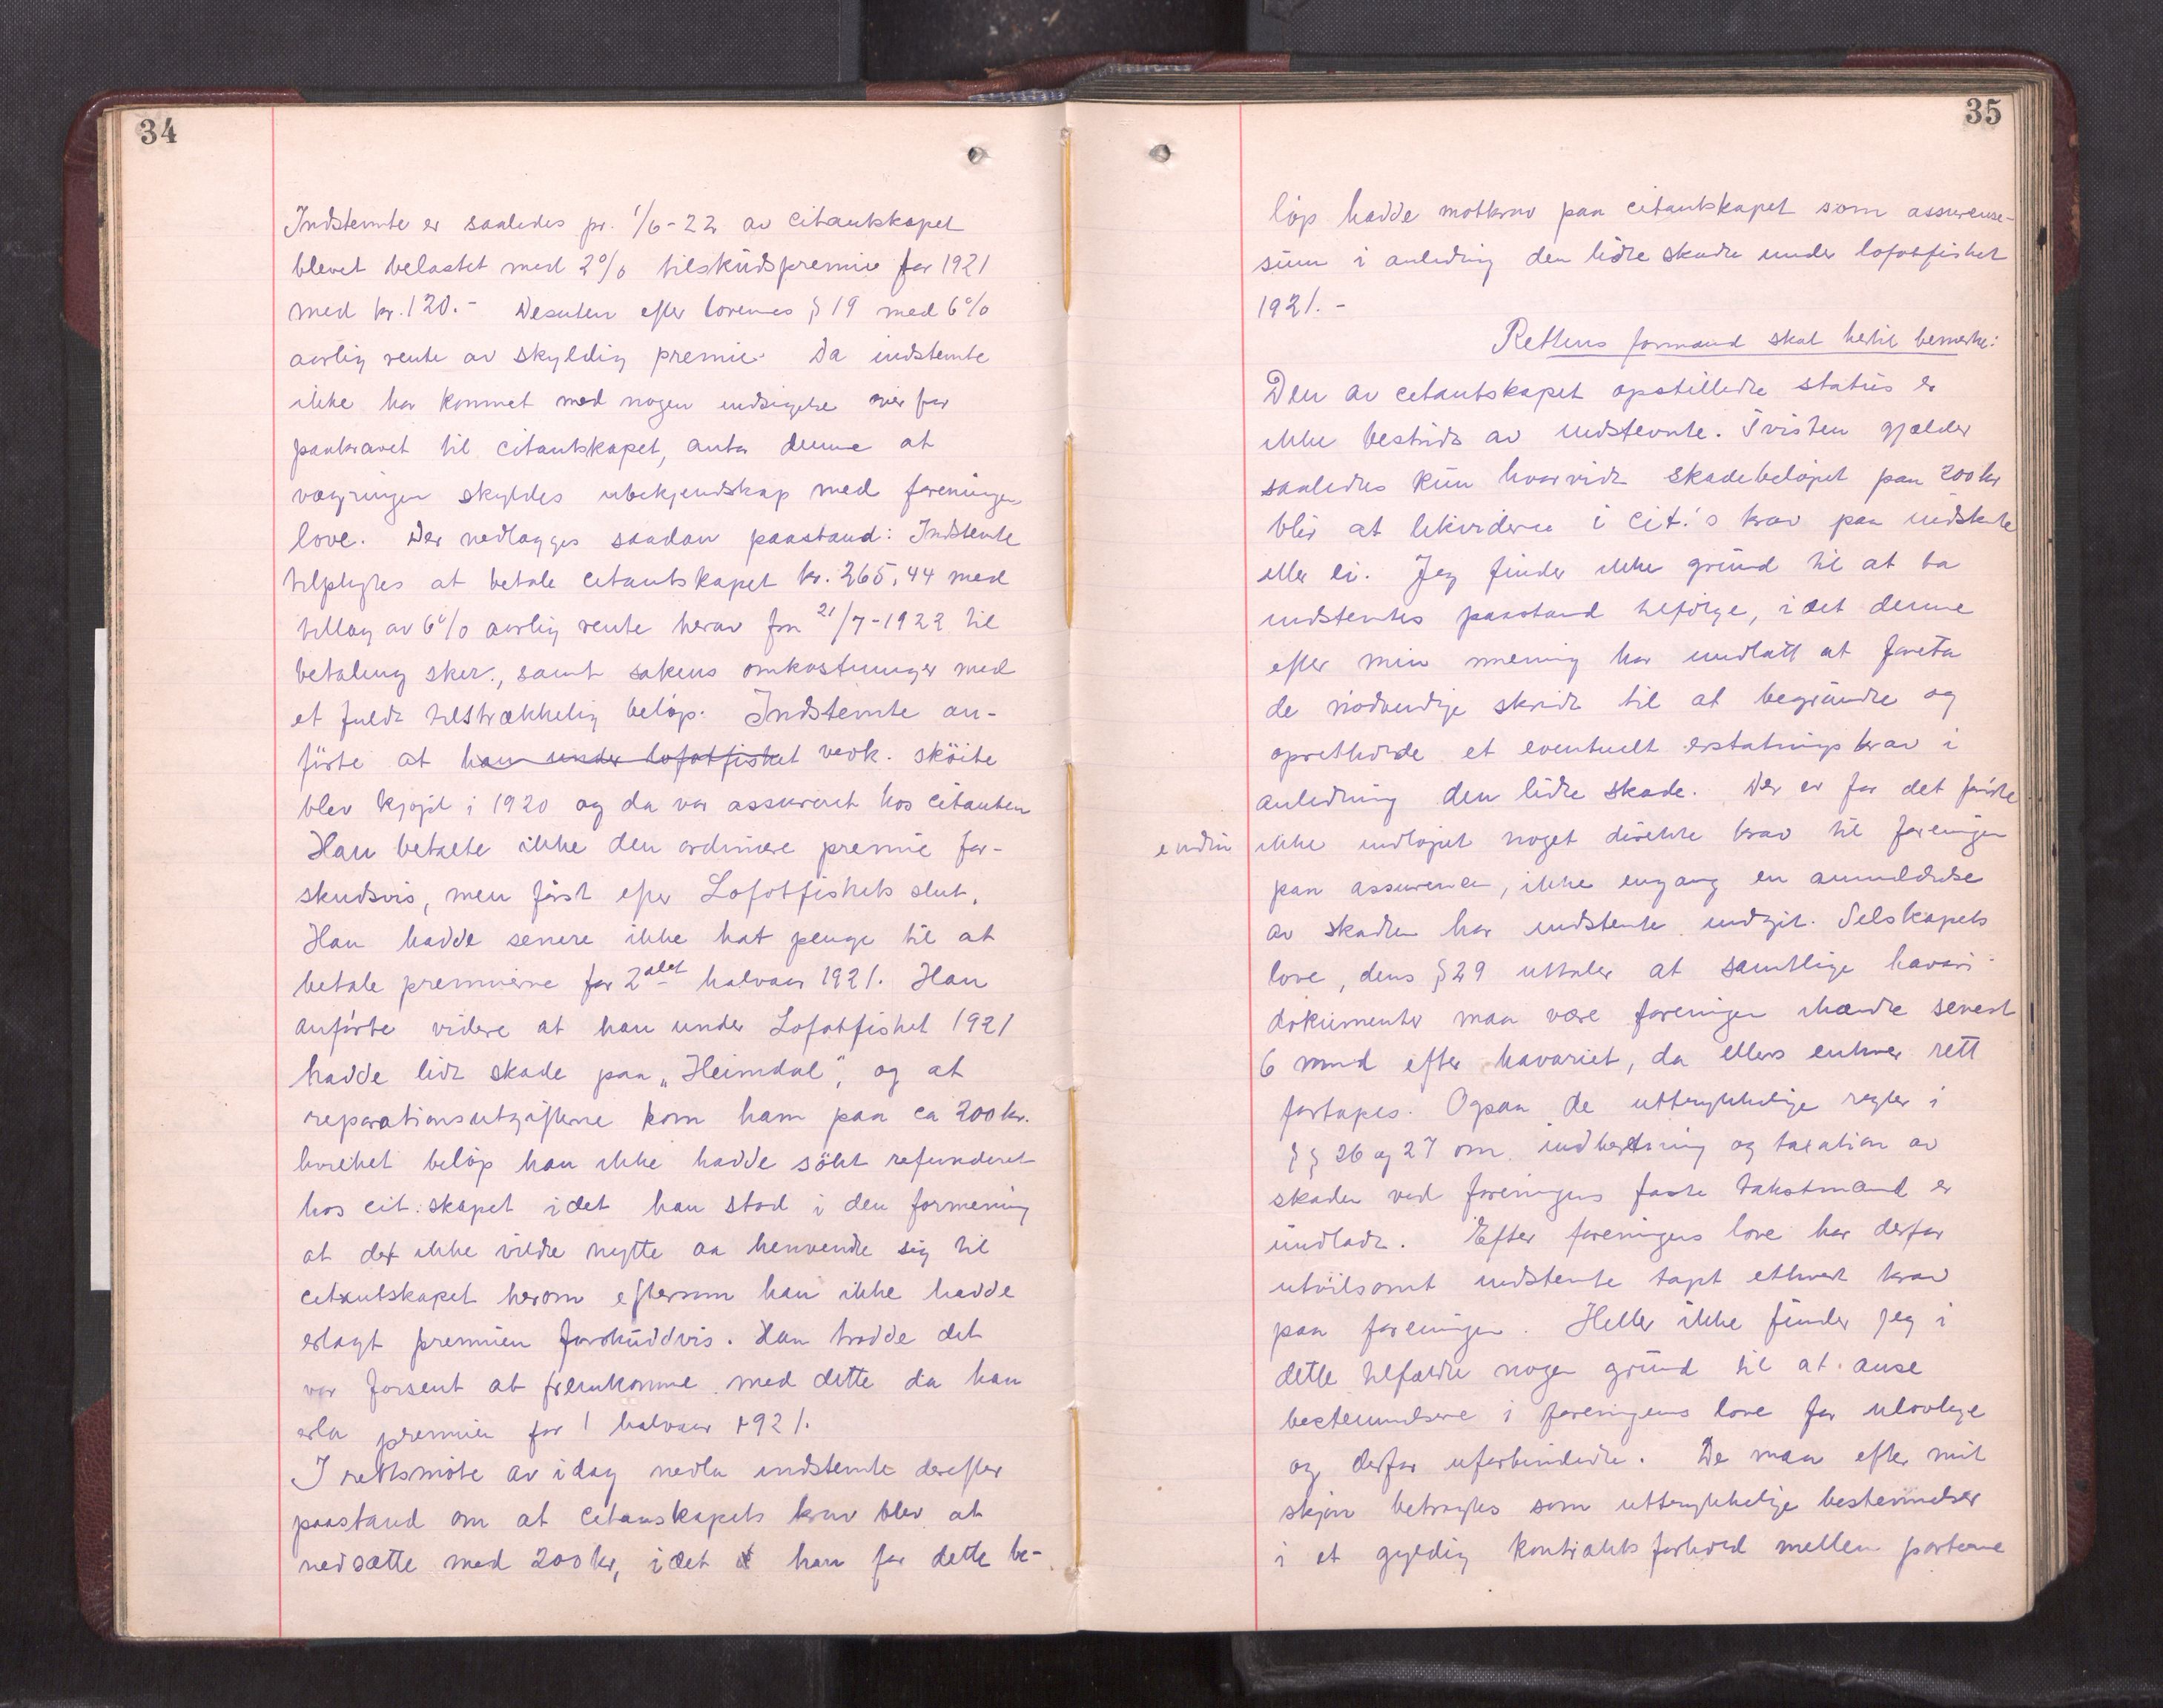 34
Indstevnte er saaledes pr. 1/6-22 av citantskapet
blevet belastet med 2% tilskudspremie for 1921
med kr. 120.- Desuten efter lovenes § 19 med 6%
aarlig rente av skyldig premie. Da indstevnte
ikke har kommet med nogen indsigelse overfor
paakravet til citantskapet, antar denne at
vægringen skyldes ubekjendskap med foreningens
love. Der nedlægges saadan paastand: Indstevnte
tilpligtes at betale citantskapet kr. 265,44 med
tillæg av 6% aarlig rente herav fra 21/7-1922 til
betaling sker., samt sakens omkostninger med
et fuldt tilstrækkelig beløp. Indstevnte an-
førte at han under lofotfisket vedk. skøite
blev kjøpt i 1920 og da var assureret hos citanten
Han betalte ikke den ordinære premie for-
skudsvis, men først efter Lofotfiskets slut.
Han hadde senere ikke hat penge til at
betale premierne for 2det halvaar 1921. Han
anførte videre at han under Lofotfisket 1921
hadde lidt skade paa „Heimdal", og at
reparationsutgifterne kom ham paa ca 200 kr.
hvilket beløp han ikke hadde søkt refunderet
hos cit:skapet idet han stod i den formening
at det ikke vilde nytte aa henvende sig til
citantskapet herom eftersom han ikke hadde
erlagt premien forskuddvis. Han trodde det
var forsent at fremkomme med dette da han
erla premien for 1 halvaar 1921.
I rettsmøte av idag nedla indstevnte derefter
paastand om at citanskapets krav blev at
nedsætte med 200 kr, idet han for dette be-
35
løp hadde motkrav paa citantskapet som assuranse-
sum i anledning den lidte skade under lofotfisket
1921.-
Rettens formand skal hertil bemerke:
Den av citantskapet opstillede status er
ikke bestridt av indstevnte. Tvisten gjælder
saaledes kun hvorvidt skadebeløpet paa 200 kr
blir at likvidere i cit.'s krav paa indstevnte
eller ei. Jeg finder ikke grund til at ta
indstevntes paastand tilfølge, idet denne
efter min mening har undlatt at foreta
de nødvendige skridt til at begrunde og
opretholde et eventuelt erstatningskrav i
anledning den lidte skade. Der er for det første
ikke indløpet noget direkte krav til foreningen
paa assurancen, ikke engang en anmeldelse
av skaden har indstevnte indgit. Selskapets
love, dens § 29 uttaler at samtlige havari-
dokumenter maa være foreningen ihænde senest
6 mnd efter havariet, da ellers enhver rett
fortapes. Ogsaa de uttrykkelige regler i
§§ 26 og 27 om indberetning og taxation av
skaden ved foreningens faste takstmænd er
undladt. Efter foreningens love har derfor
utvilsomt indstevnte tapt ethvert krav
paa foreningen. Heller ikke finder jeg i
dette tilfælde nogen grund til at anse
bestemmelsene i foreningens love for ulovlige
og derfor uforbindende. De maa efter mit
skjøn betragtes som uttrykkelige bestemmelser
i et gyldig kontraktsforhold mellem parterne